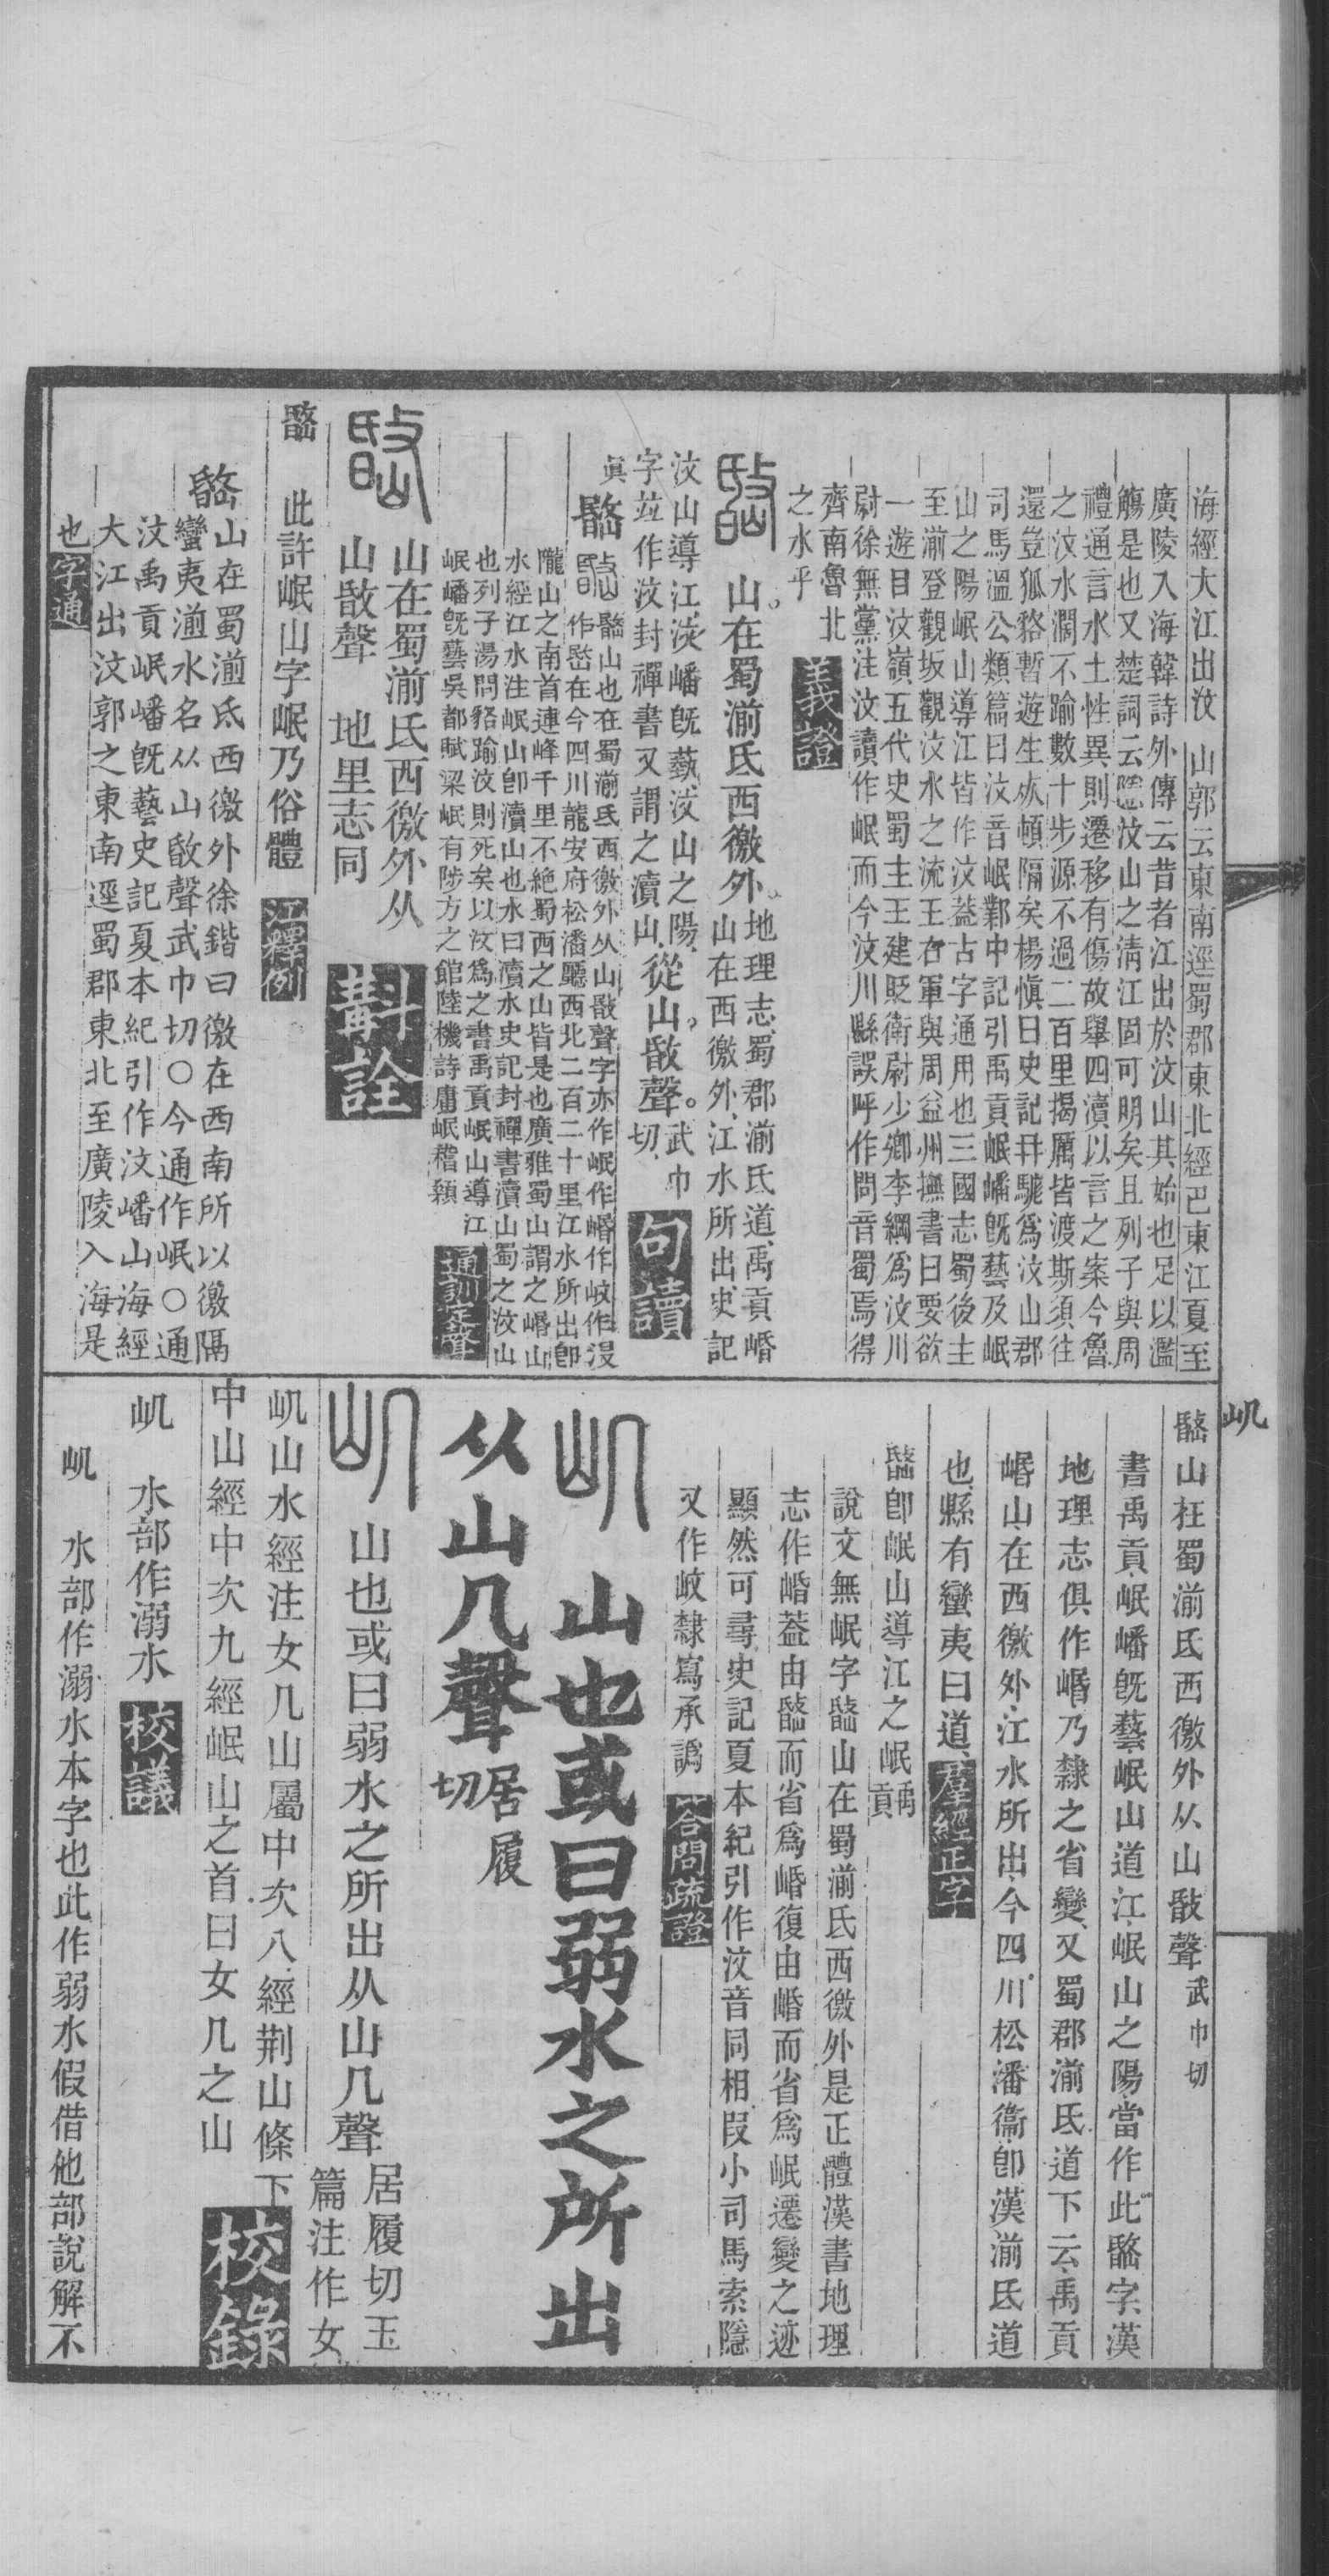 海經大江出汶山郭云東南逕蜀郡東北經巴東江夏至
廣陵入海韓詩外傳云昔者江出於汶山其始也足以濫
觴是也又楚詞云隱汶山之清江固可明矣且列子與周
禮通言水土性異則遷移有傷故舉四瀆以言之案今魯
之汶水濶不踰數十步源不過二百里揭厲皆渡斯須往
還豈狐貉暫遊生於頓隔矣楊愼曰史記冄駹爲汶山郡
司馬溫公類篇曰汶音岷鄴中記引禹貢岷嶓旣藝及岷
山之陽岷山導江皆作汶葢古字通用也三國志蜀後主
至湔登觀坂觀汶水之流王右軍與周益州撫書曰要欲
一遊目汶嶺五代史蜀主王建貶衛尉少卿李綱爲汶川
尉徐無黨注汶讀作岷而今汶川縣誤呼作問音蜀焉得
齊南魯北
之水乎 義證
山在蜀湔氐西徼外地理志蜀郡湔氐道禹貢㟭
山在西徼外江水所出史記
汶山導江汶嶓旣蓺汶山之陽
字竝作汶封禪書又謂之瀆山從山敯聲武巾
切 句讀
𡹏山也在蜀湔氐西徼外从山敯聲字亦作岷作㟭作㟩作汶
作㟭在今四川龍安府松潘廳西北二百二十里江水所出卽
隴山之南首連峰千里不絶蜀西之山皆是也廣雅蜀山謂之㟭山
水經江水注岷山卽瀆山也水曰瀆水史記封禪書瀆山蜀之汶山
也列子湯問貉踰汶則死矣以汶爲之書禹貢岷山導江
岷嶓旣藝吳都賦梁岷有陟方之館陸機詩庸岷稽顙 通訓定聲
山在蜀湔氏西徼外从
山敯聲 地里志同 斠詮
此許岷山字岷乃俗體 江釋例
山在蜀湔氐西徼外徐鍇曰徼在西南所以徼隔
蠻夷湔水名从山敯聲武巾切○今通作岷○通
汶禹貢岷嶓旣藝史記夏本紀引作汶嶓山海經
大江出汶郭之東南逕蜀郡東北至廣陵入海是
也 字通
屼
𡹏山在蜀湔氐西徼外从山敯聲武巾切
書禹貢岷嶓旣藝岷山道江岷山之陽當作此𡹏字漢
地理志俱作㟭乃隸之省變又蜀郡湔氐道下云禹貢
㟭山在西徼外江水所出今四川松潘衞卽漢湔氐道
也縣有蠻夷曰道 羣經正字
𡹏卽岷山導江之岷禹貢
說文無岷字𡹏山在蜀湔氏西徼外是正體漢書地理
志作㟭葢由𡹏而省爲㟭復由㟭而省爲岷遷變之迹
顯然可尋史記夏本紀引作汶音同相叚小司馬索隱
又作㟩隸寫承譌 答問疏證
山也或曰弱水之所出
从山几聲居履
切
山也或曰弱水之所出从山几聲居履切玉
篇注作女
屼山水經注女几山屬中次八經荆山條下
中山經中次九經岷山之首曰女几之山 校錄
屼 水部作溺水 校議
屼 水部作溺水本字也此作弱水假借他部說解不